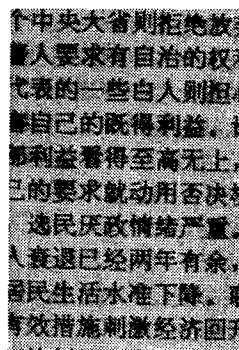 个中央大省则拒绝放
人要求有自治的权
代表的一些白人则担
自己的既得利益。
利益看得至高无上，
己的要求就动用否决
选民厌政情绪严重。
人衰退已经两年有余，
居民生活水准下降。
有效措施刺激经济回